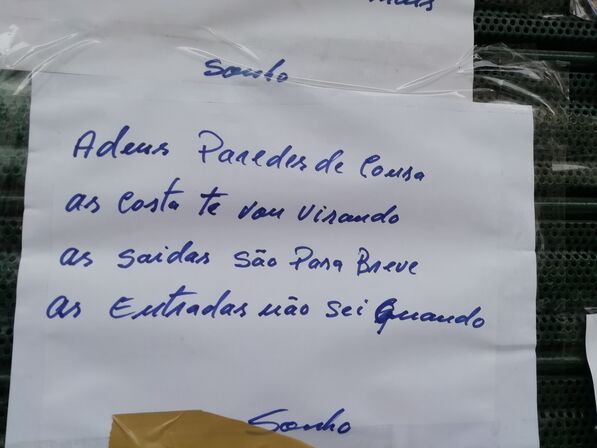 mais
Sonho
Adeus Paredes de Coura
as costa te vou virando
as saidas são Para Breve
as Entradas não sei Quando
Sonho